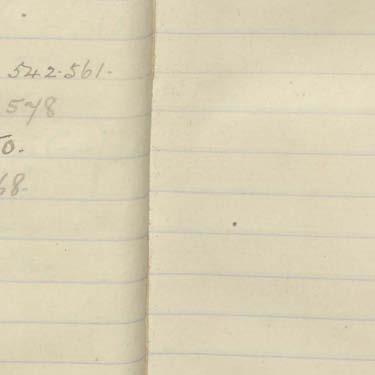 542.561.
578
50.
68.